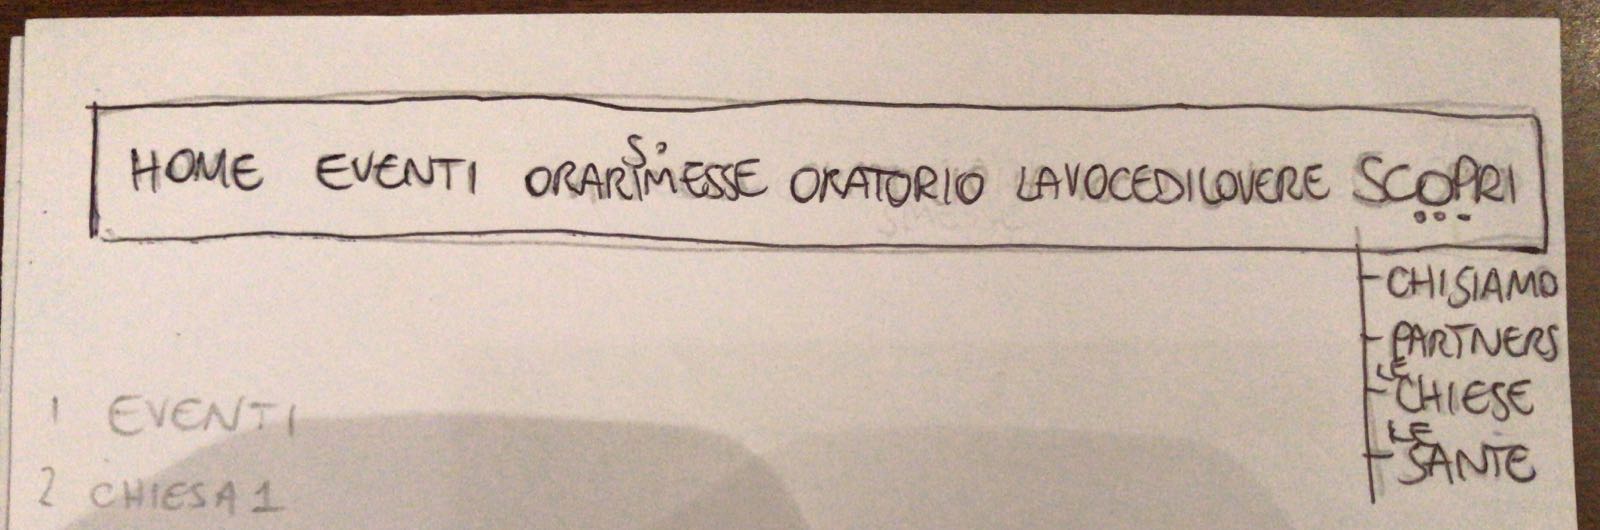 HOME EVENTI ORARI S. MESSE ORATORIO LAVOCEDILOVERE SCOPRI
...
CHI SIAMO
PARTNERS
LE CHIESE
LE SANTE
1 EVENTI
2 CHIESA 1